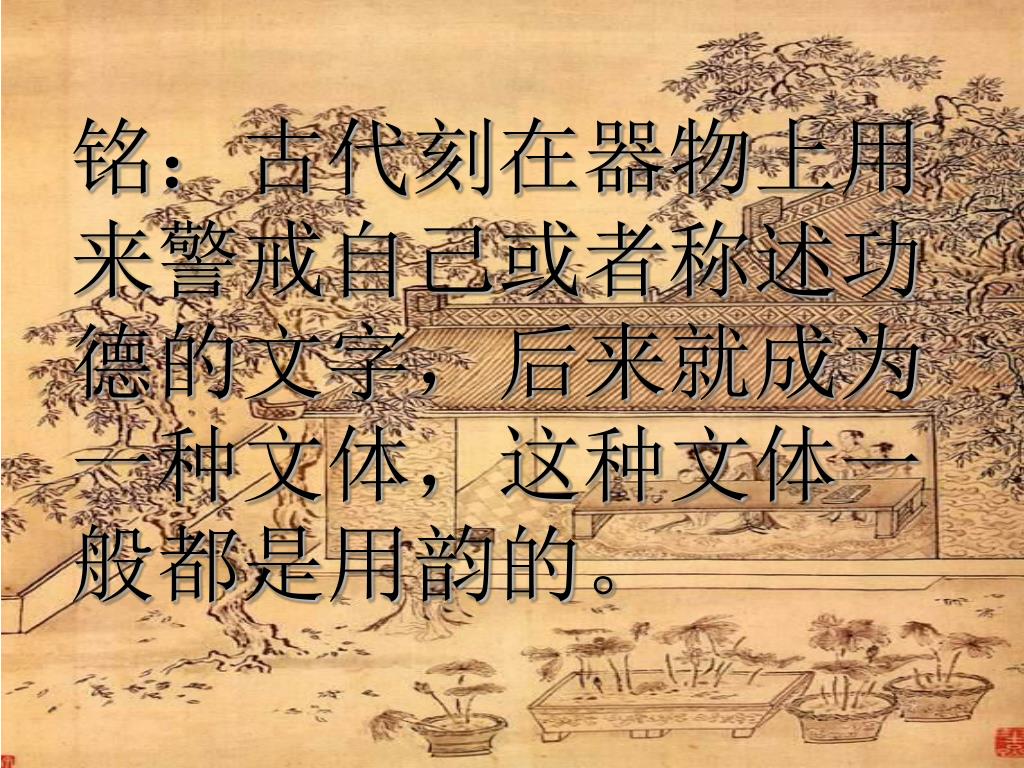 铭：古代刻在器物上用
来警戒自己或者称述功
德的文字，后来就成为
一种文体，这种文体一
般都是用韵的。